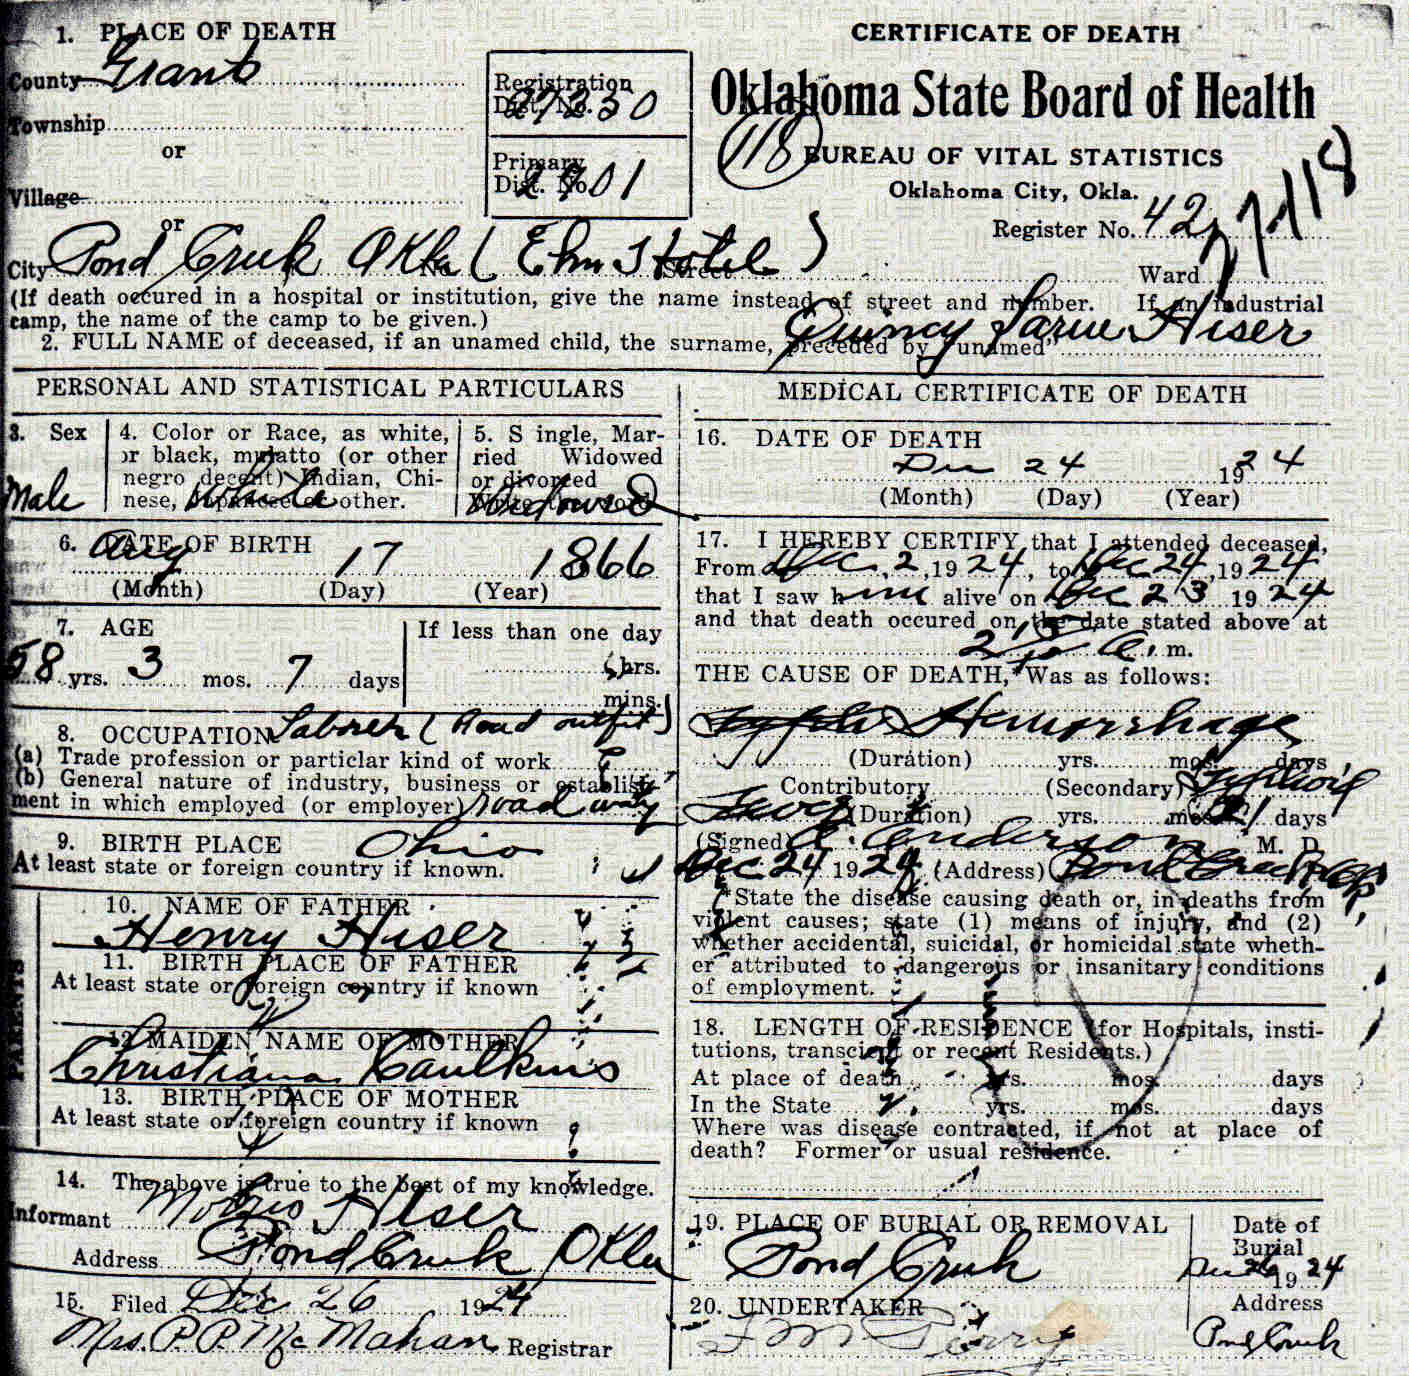 CERTIFICATE OF DEATH
Oklahoma State Board of Health
BUREAU OF VITAL STATISTICS
Oklahoma City, Okla.
118
Register No. 42
Ward
1. PLACE OF DEATH
County Grant
Township
or
Village
or
City Pond Creek Okla No. (Elm Hotel) Street
Registration Dist. No.
Primary Dist. No.
(If death occured in a hospital or institution, give the name instead of street and number. If an industrial
camp, the name of the camp to be given.)
2. FULL NAME of deceased, if an unamed child, the surname, preceded by "unamed" Quincy Hiser
PERSONAL AND STATISTICAL PARTICULARS
3. Sex
Male
4. Color or Race, as white,
or black, mulatto (or other
negro decent) Indian, Chi-
nese, Japancese or other.
White
5. S ingle, Mar-
ried Widowed
or divorced
Widowed
6. DATE OF BIRTH
Aug 17 1866
(Month) (Day) (Year)
7. AGE
58 yrs. 3 mos. 7 days
If less than one day
hrs.
mins.
8. OCCUPATION Laborer (Road outfit)
(a) Trade profession or particlar kind of work
(b) General nature of industry, business or establish-
ment in which employed (or employer) road
9. BIRTH PLACE Ohio
At least state or foreign country if known.
PARENTS
10. NAME OF FATHER
Henry Hiser
11. BIRTH PLACE OF FATHER
At least state or foreign country if known
12 MAIDEN NAME OF MOTHER
Christiana Caulkins
13. BIRTH PLACE OF MOTHER
At least state or foreign country if known
14. The above is true to the best of my knowledge.
Informant Hiser
Address Pond Creek Okla
15. Filed Dec 26 1924
Mrs. P. P. McMahan Registrar
MEDICAL CERTIFICATE OF DEATH
16. DATE OF DEATH
Dec 24 1924
(Month) (Day) (Year)
17. I HEREBY CERTIFY that I attended deceased,
From Dec, 2, 1924, to Dec 24, 1924
that I saw him alive on Dec 23 1924
and that death occured on the date stated above at
a. m.
THE CAUSE OF DEATH,* Was as follows:
Hemorrhage
(Duration) yrs. mos. days
Contributory (Secondary) Typhoid
Fever (Duration) yrs. mos. 21 days
(Signed) Anderson M. D.
Dec 24 1924 (Address) Pond Creek
*State the disease causing death or, in deaths from
violent causes; state (1) means of injury, and (2)
whether accidental, suicidal, or homicidal state wheth-
er attributed to dangerous or insanitary conditions
of employment.
18. LENGTH OF RESIDENCE (for Hospitals, insti-
tutions, transcient or recent Residents.)
At place of death yrs. mos. days
In the State yrs. mos. days
Where was disease contracted, if not at place of
death? Former or usual residence.
19. PLACE OF BURIAL OR REMOVAL
Pond Creek
Date of
Burial
Dec 26 1924
20. UNDERTAKER
Address
Pond Creek